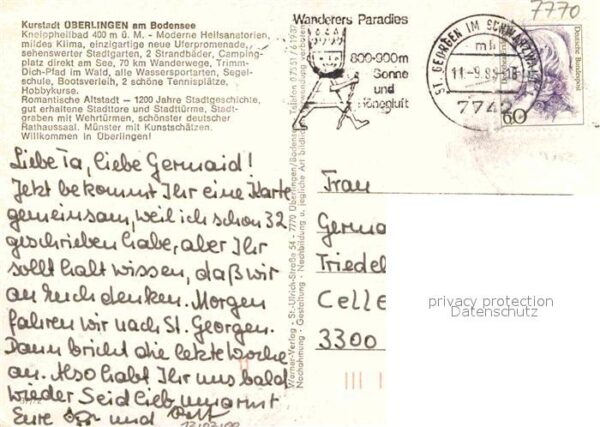 Kurstadt ÜBERLINGEN am Bodensee
Kneippheilbad 400 m ü. M. - Moderne Heilsanatorien,
mildes Klima, einzigartige neue Uferpromenade,
sehenswerter Stadtgarten, 2 Strandbäder, Camping-
platz direkt am See, 70 km Wanderwege, Trimm-
Dich-Pfad im Wald, alle Wassersportarten, Segel-
schule, Bootsverleih, 2 schöne Tennisplätze,
Hobbykurse.
Romantische Altstadt — 1200 Jahre Stadtgeschichte,
gut erhaltene Stadttore und Stadttürme, Stadt-
graben mit Wehrtürmen, schönster deutscher
Rathaussaal. Münster mit Kunstschätzen.
Willkommen in Überlingen!
Liebe Ta, liebe Germaid!
Jetzt bekommt Ihr eine Karte
gemeinsam, weil ich schon 32
geschrieben habe, aber Ihr
sollt halt wissen, daß wir
an Euch denken. Morgen
fahren wir nach St. Georgen.
Dann bricht die letzte Woche
an. Also habt Ihr uns bald
wieder Seid lieb umarmt
Eure und
Werner-Verlag - St.-Ulrich-Straße 54 - 7770 Überlingen/Bodensee
Nachahmung - Gestaltung - Nachbildung u. jegliche Art bildlicher
Wanderers Paradies
800-900m
Sonne
und
Höhenluft
ST. GEORGEN IM SCHWARZWALD
mb
7742
Deutsche Bundespost
60
7770
Frau
Germa
Triedel
Celle
3300
privacy protection
Datenschutz